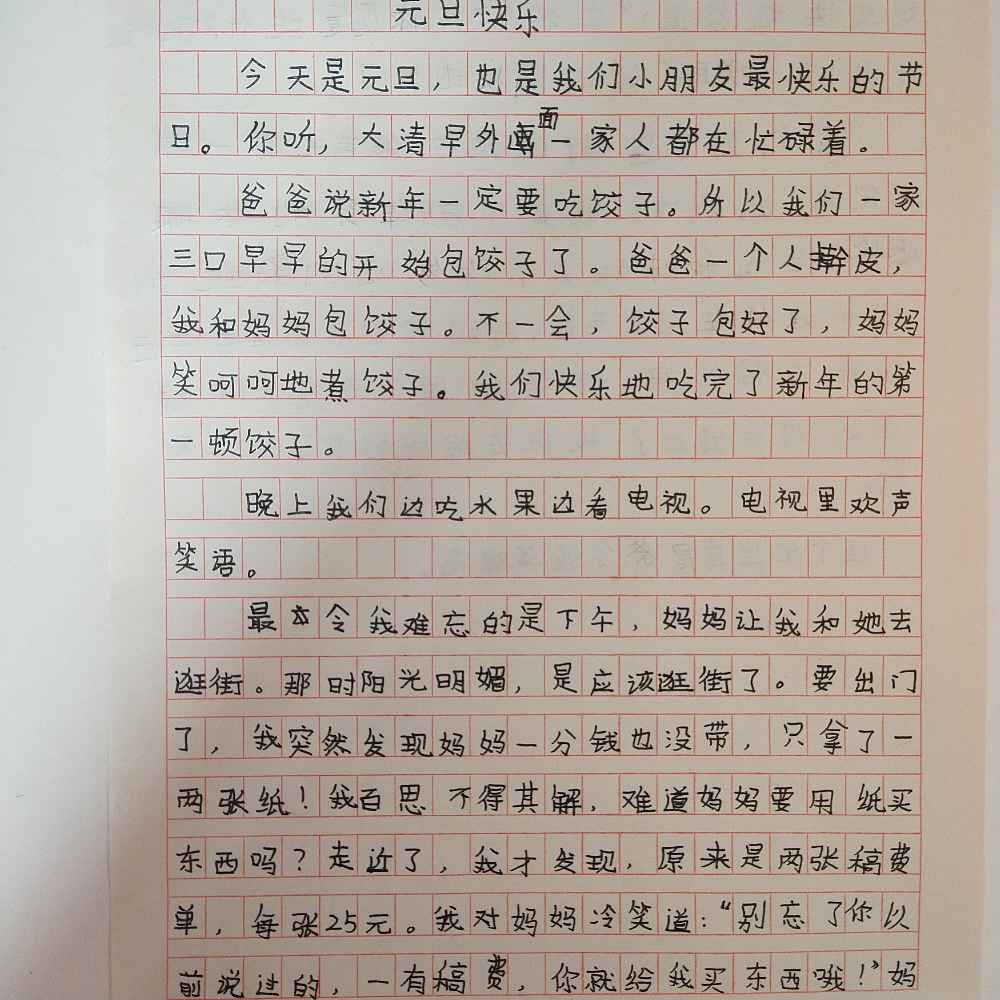 元旦快乐
今天是元旦，也是我们小朋友最快乐的节
日。你听，大清早外面一家人都在忙碌着。
爸爸说新年一定要吃饺子。所以我们一家
三口早早的开始包饺子了。爸爸一个人擀皮，
我和妈妈包饺子。不一会，饺子包好了，妈妈
笑呵呵地煮饺子。我们快乐地吃完了新年的第
一顿饺子。
晚上我们边吃水果边看电视。电视里欢声
笑语。
最令我难忘的是下午，妈妈让我和她去
逛街。那时阳光明媚，是应该逛街了。要出门
了，我突然发现妈妈一分钱也没带，只拿了一
两张纸！我百思不得其解，难道妈妈要用纸买
东西吗？走近了，我才发现，原来是两张稿费
单，每张25元。我对妈妈冷笑道：“别忘了你以
前说过的，一有稿费，你就给我买东西哦！”妈